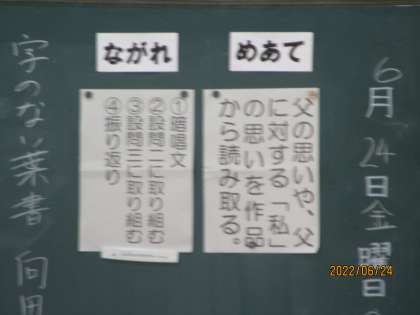 6月24日金曜日
めあて
父の思いや、父
に対する「私」
の思いを作品
から読み取る。
ながれ
①暗唱文
②設問二に取り組む
③設問三に取り組む
④振り返り
字のない葉書 向田
2022/06/24